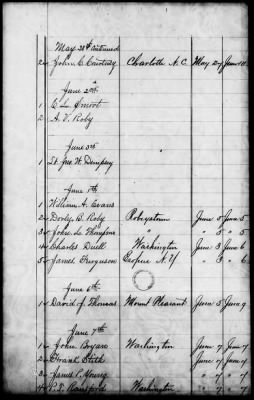 May 28th Continued
2 John C. Courtney Charlotte N.C. May 27 June 10
June 2nd
1 C. L. Smoot
2 A. V. Roby
June 3rd
1 Lt Jno W. Dempsey "
June 5th
1 William A. Evans
2 Dorley B. Roby Robystown June 5 June 5
3 John L. Thompson " " 5 " 5
4 Charles Duell Washington June 3 June 6
5 James Ferguson Esopus N.Y " 3 " 6
June 6th
1 David J. Thomas Mount Pleasant June 5 June 9
June 7th
1 John Bryan Washington June 7 June 7
2 Frank Stith June 7 June 7
3 James P. Young " 7 " 7
4 P. T. Ransford Washington " 7 " 7